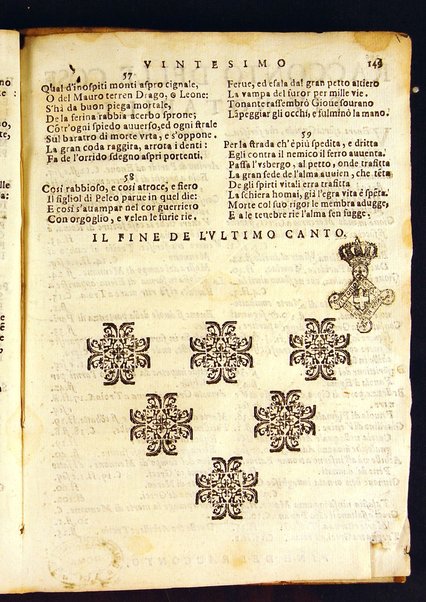 VINTESIMO 143
57
Qual d'inospiti monti aspro cignale,
O del Mauro terren Drago, o Leone:
S'há da buon piega mortale,
De la ferina rabbia acerbo sprone;
Cõtr'ogni spiedo auuerso, ed ogni strale
Sul baratro di morte vrta, e s'oppone.
La gran coda raggira, arrota i denti:
Fa de l'orrido sdegno aspri portenti.
58
Cosi rabbioso, e cosi atroce, e fiero
Il figliol di Peleo parue in quel die:
E cosi s'auampar nel cor guerriero
Con orgoglio, e velen le furie rie.
Ferue, ed esala dal gran petto altiero
La vampa del furor per mille vie.
Tonante rassembrò Gioue sourano
Lãpeggiar gli occhi, e fulminò la mano.
59
Per la strada ch'è più spedita, e dritta
Egli contra il nemico il ferro auuenta.
Passa l'vsbergo, al petto, onde trafitta
La gran sede de l'alma auuien, che tẽta
De gli spirti vitali erra trafitta
La schiera homai, già l'egra vita è spẽta.
Morte col suo rigor le membra adugge,
E a le tenebre rie l'alma sen fugge.
IL FINE DE L'VLTIMO CANTO.